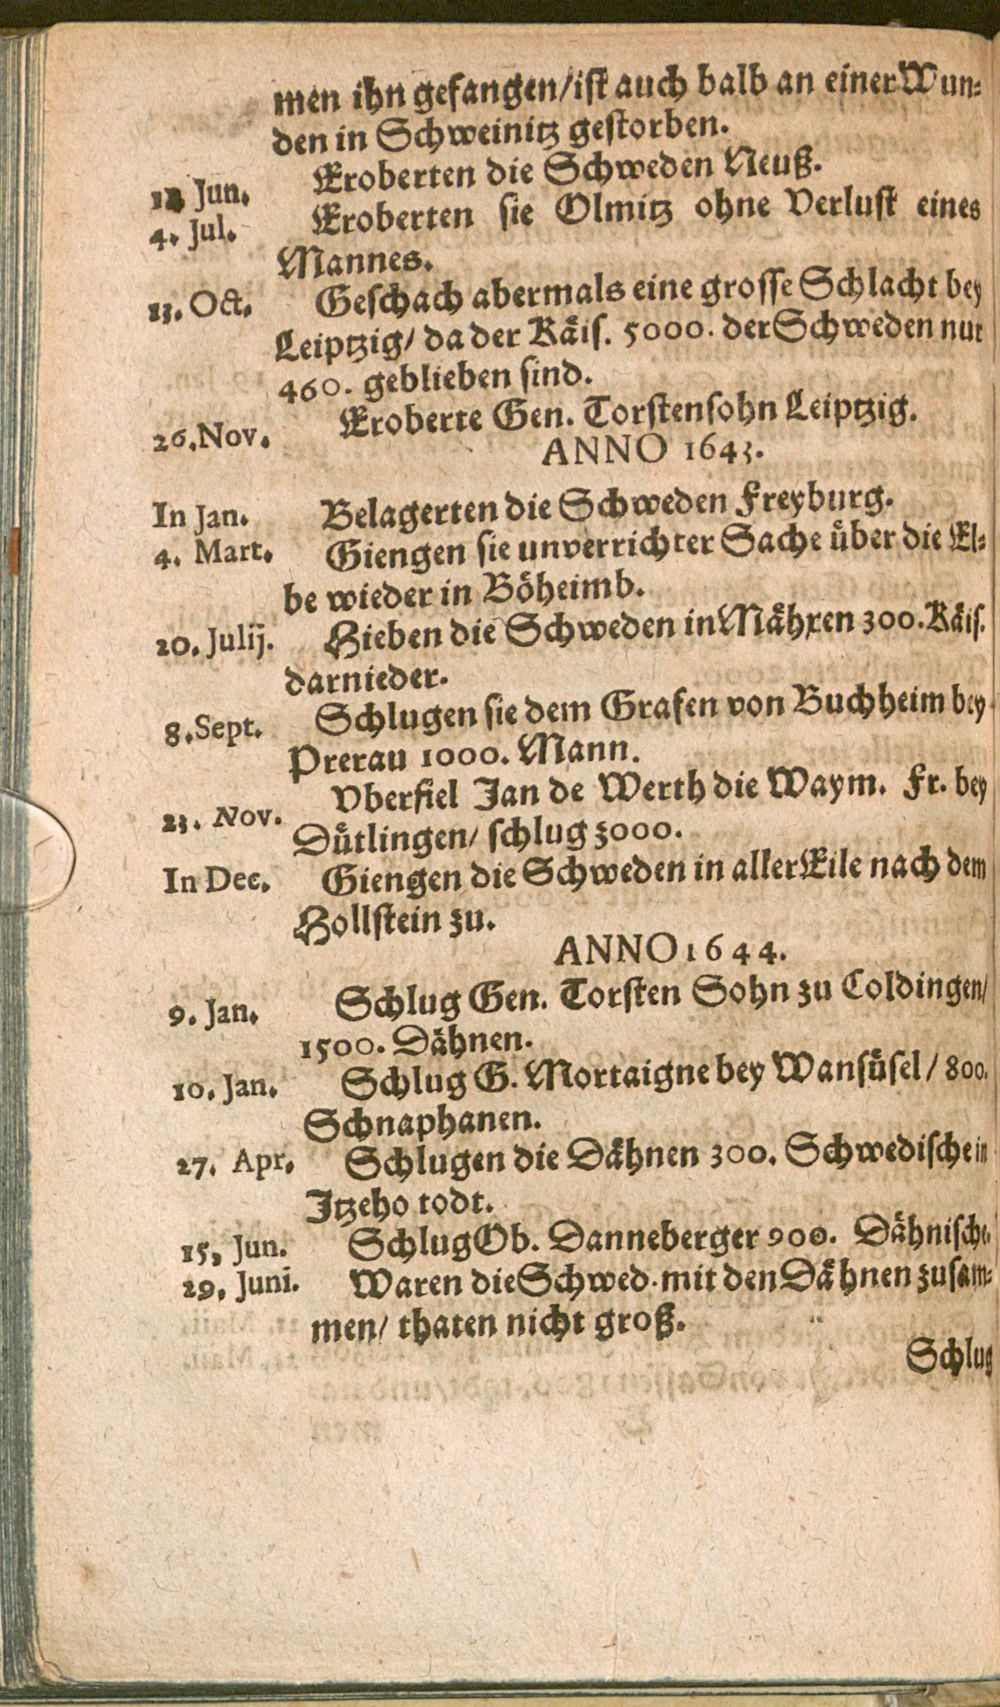 men ihn gefangen/ist auch balb an einer Wun-
den in Schweinitz gestorben.
Jun. Eroberten die Schweden Neuß.
4. Jul. Eroberten sie Olmitz ohne Verlust eines
Mannes.
23. Oct. Geschach abermals eine grosse Schlacht bey
Leiptzig/ da der Käis. 5000. der Schweden nur
460. geblieben sind.
26. Nov. Eroberte Gen. Torstensohn Leiptzig.
ANNO 1643.
In Jan. Belagerten die Schweden Freyburg.
4. Mart. Giengen sie unverrichter Sache über die El-
be wieder in Böheimb.
20. Julij. Hieben die Schweden in Mähren 300. Käis.
darnieder.
8. Sept. Schlugen sie dem Grafen von Buchheim bey
Prerau 1000. Mann.
23. Nov. Vberfiel Jan de Werth die Waym. Fr. bey
Dütlingen/ schlug 3000.
In Dec. Giengen die Schweden in aller Eile nach dem
Hollstein zu.
ANNO 1644.
9. Jan. Schlug Gen. Torsten Sohn zu Coldingen/
1500. Dähnen.
10. Jan. Schlug G. Mortaigne bey Wansüsel/ 800.
Schnaphanen.
27. Apr. Schlugen die Dähnen 300. Schwedische in
Itzeho todt.
15. Jun. Schlug Ob. Danneberger 900. Dähnische.
29. Juni. Waren die Schwed. mit den Dähnen zusam-
men/ thaten nicht groß.
Schlug